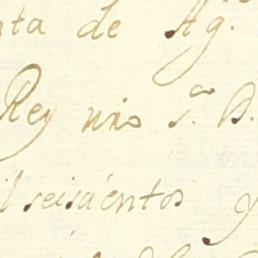 nta de Ag.
Rey nro S.or D.
il seiscientos y